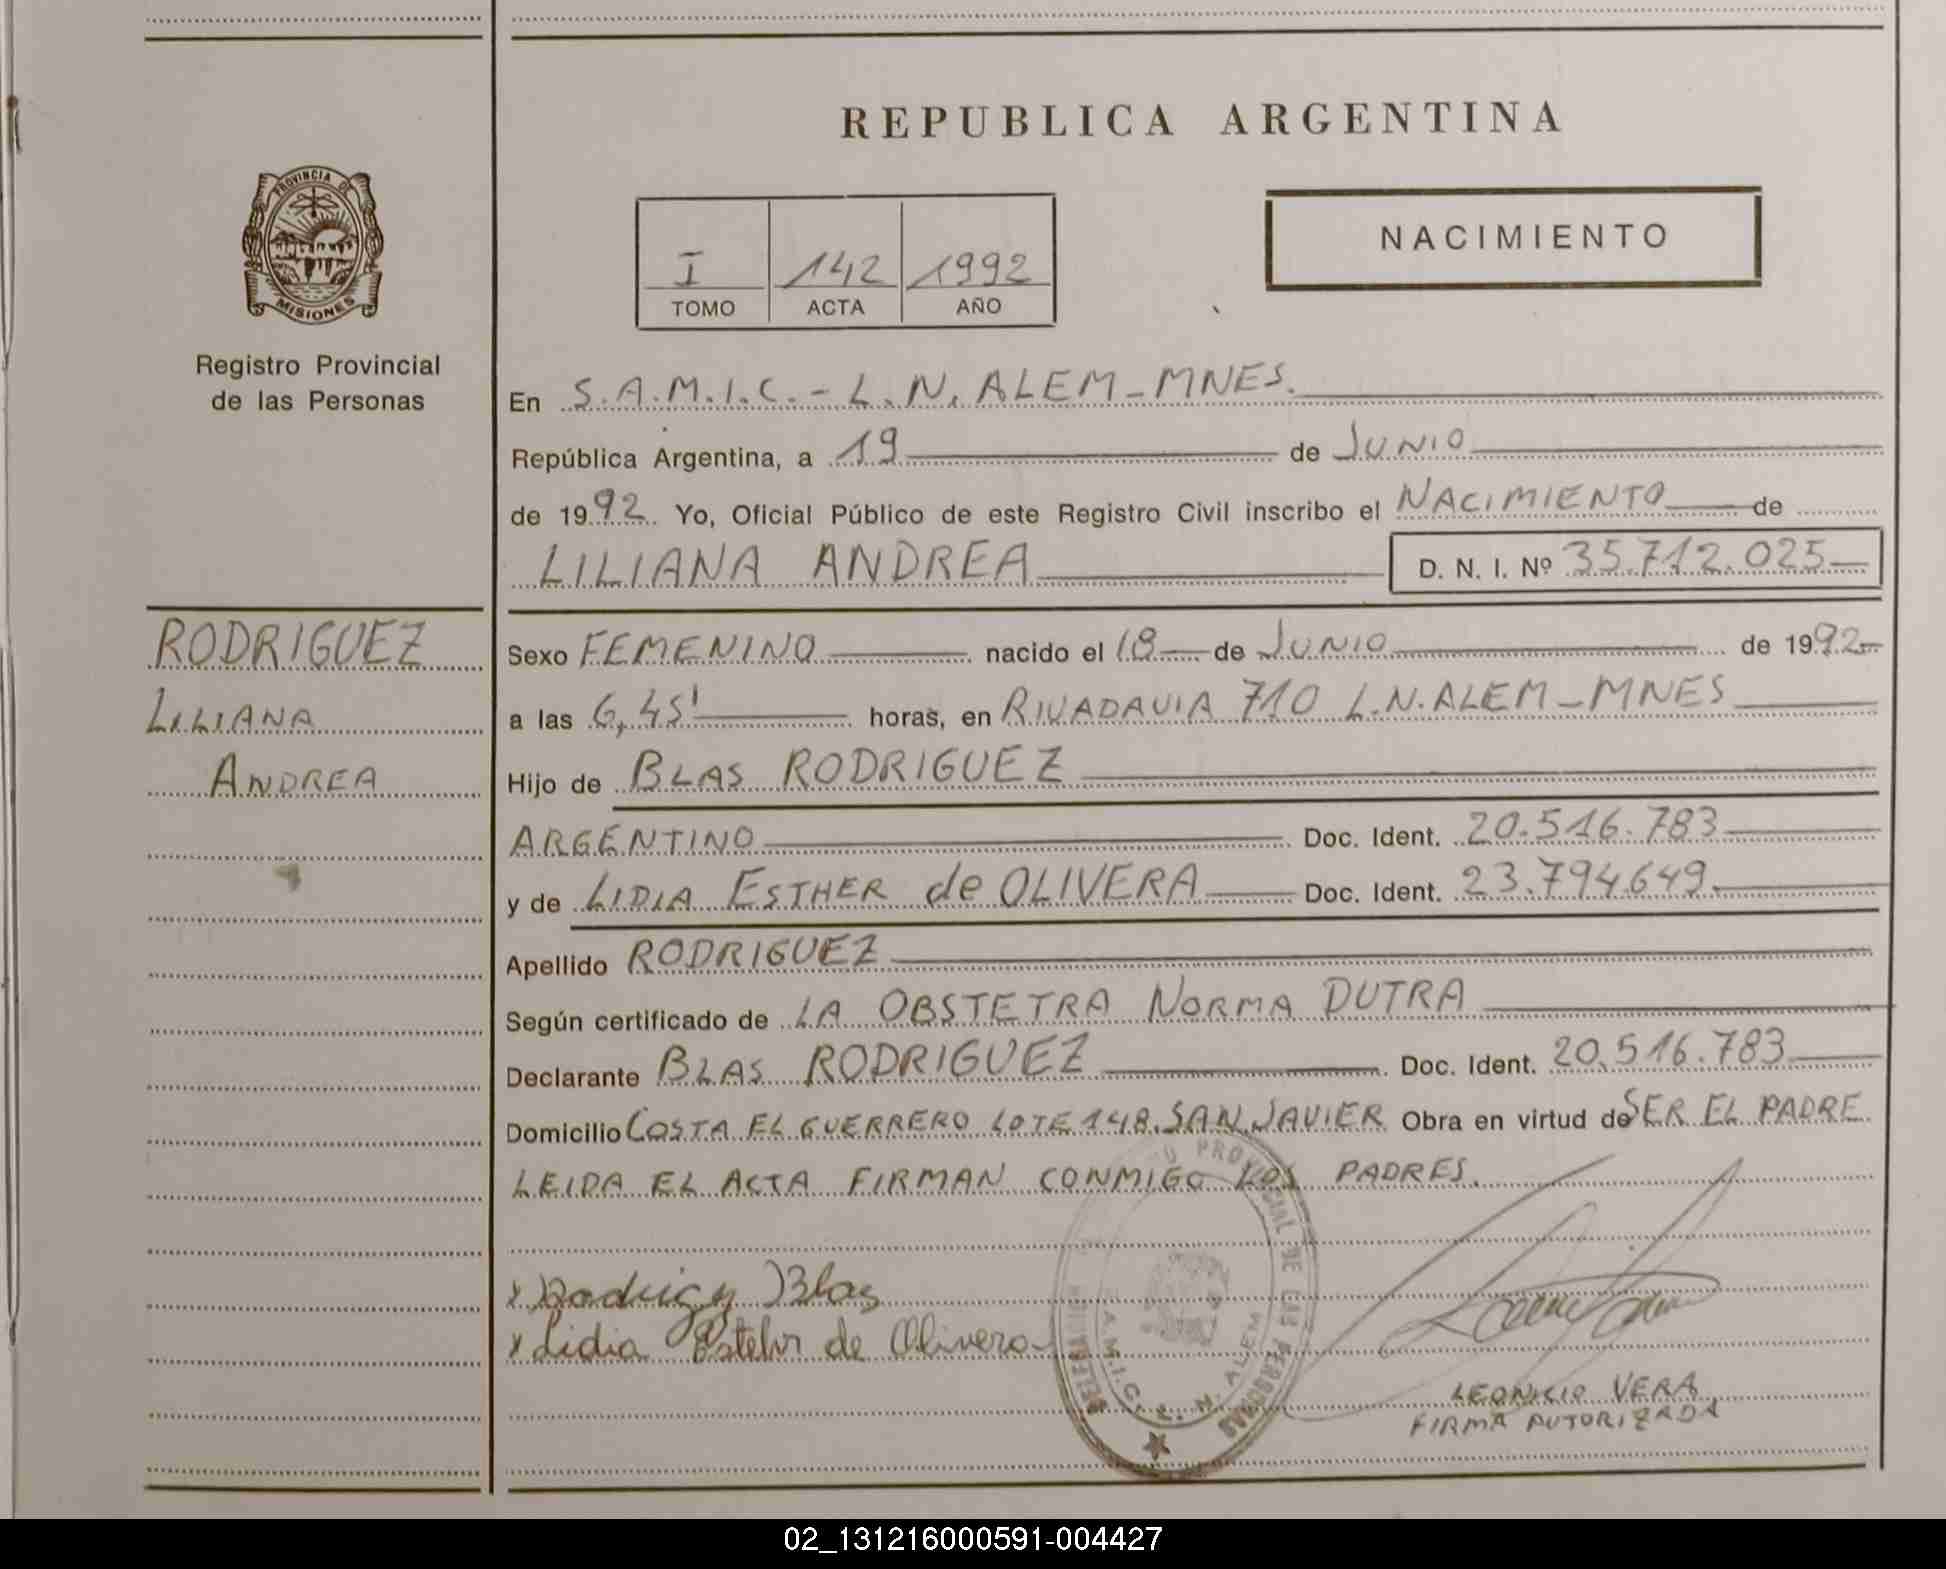 REPUBLICA ARGENTINA
PROVINCIA DE
MISIONES
Registro Provincial
de las Personas
I 142 1992
TOMO ACTA AÑO
NACIMIENTO
En S.A.M.I.C. - L.N. ALEM - MNES.
República Argentina, a 19 de JUNIO
de 1992 Yo, Oficial Público de este Registro Civil inscribo el NACIMIENTO de
LILIANA ANDREA D. N. I. Nº 35.712.025
RODRIGUEZ
LILIANA
ANDREA
Sexo FEMENINO nacido el 18 de JUNIO de 1992
a las 6,45' horas, en RIVADAVIA 710 L.N. ALEM - MNES
Hijo de BLAS RODRIGUEZ
ARGENTINO Doc. Ident. 20.516.783
y de LIDIA ESTHER de OLIVERA Doc. Ident. 23.794.649.
Apellido RODRIGUEZ
Según certificado de LA OBSTETRA NORMA DUTRA
Declarante BLAS RODRIGUEZ Doc. Ident. 20.516.783
Domicilio COSTA EL GUERRERO LOTE 148. SAN JAVIER Obra en virtud de SER EL PADRE
LEIDA EL ACTA FIRMAN CONMIGO LOS PADRES.
x Rodriguez Blas
x Lidia Ester de Olivera
PROVINCIAL DE LAS PERSONAS
A.M.I.C. L. N. ALEM
LEONICIO VERA
FIRMA AUTORIZADA
02_131216000591-004427